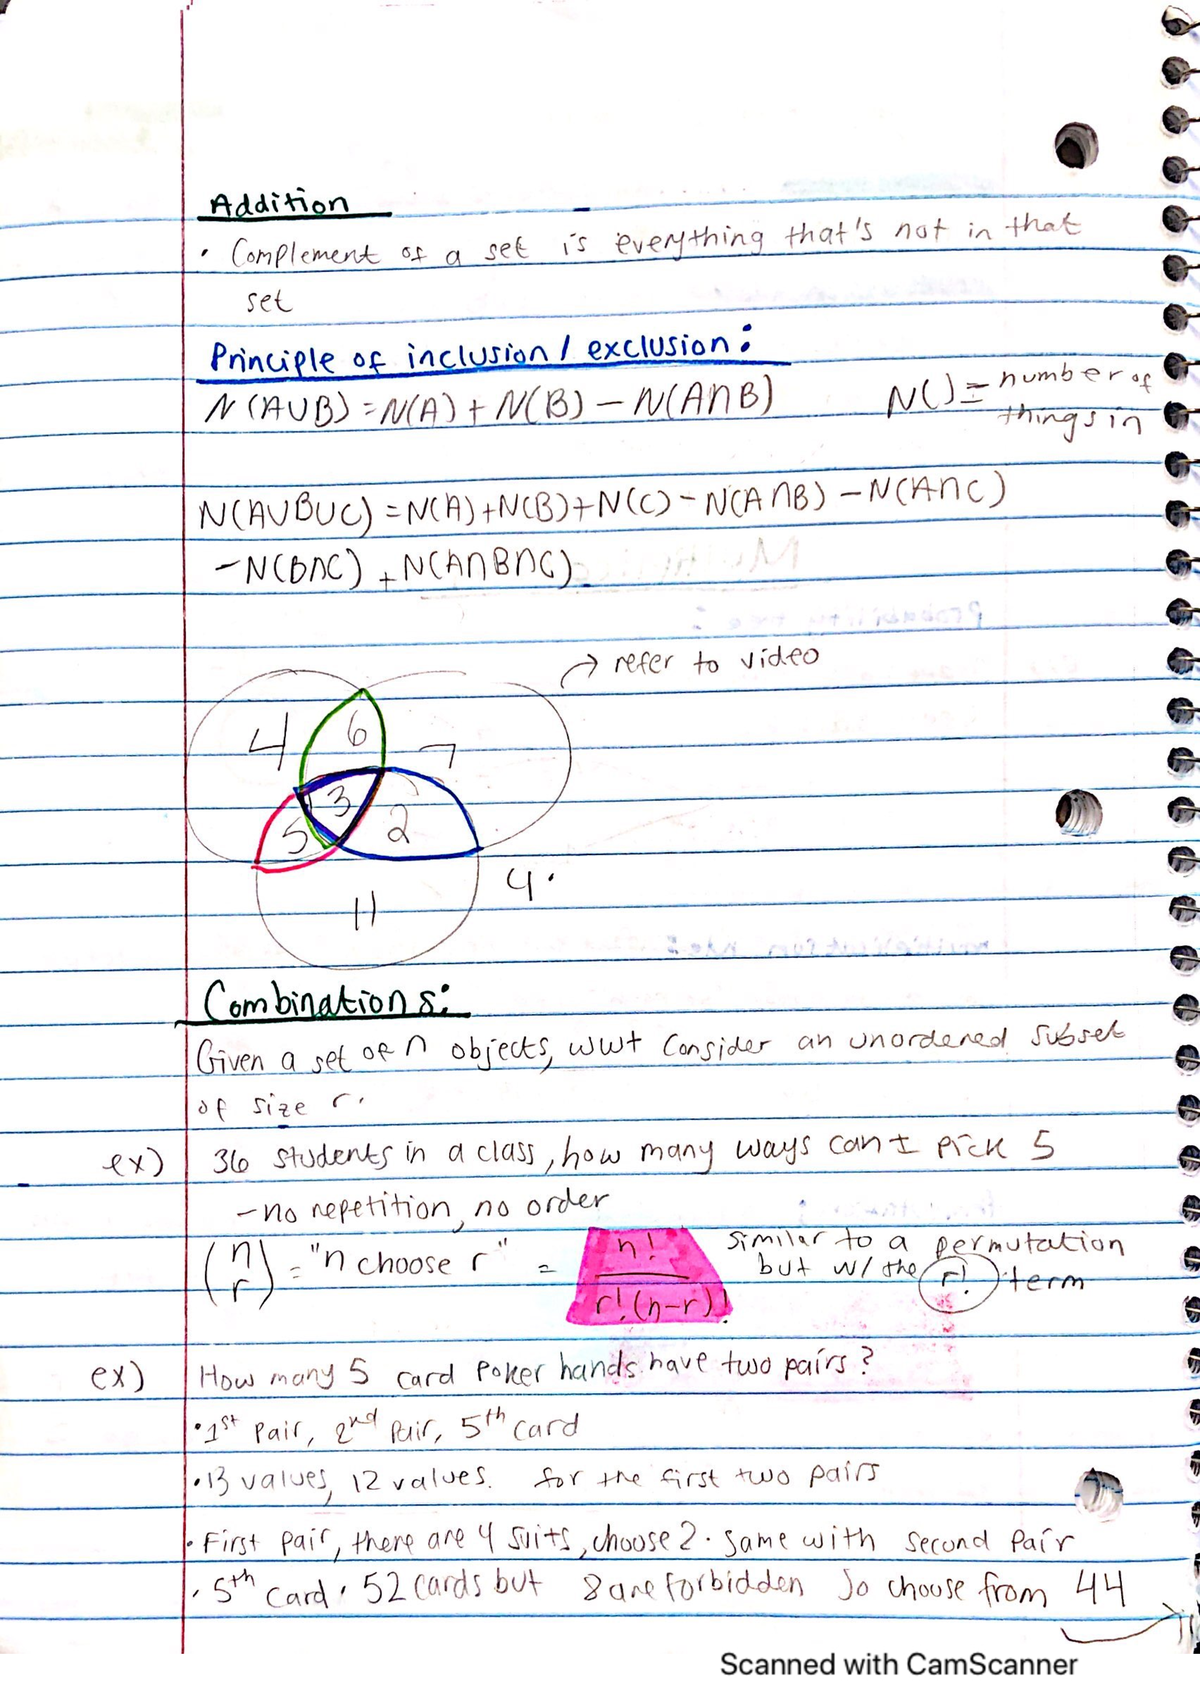 Addition
• Complement of a set is everything that's not in that
set
Principle of inclusion / exclusion:
N(A∪B) = N(A) + N(B) − N(A∩B)
N() = number of
things in
N(A∪B∪C) = N(A) + N(B) + N(C) − N(A∩B) − N(A∩C)
− N(B∩C) + N(A∩B∩C)
→ refer to video
4 6 7
3
5 2
4 •
11
Combinations:
Given a set of n objects, wwt consider an unordered subset
of size r.
ex) 36 students in a class, how many ways can I pick 5
- no repetition, no order
(n r) = "n choose r" = n! / r!(n-r)!
similar to a permutation
but w/ the r! term
ex) How many 5 card poker hands have two pairs?
• 1st pair, 2nd pair, 5th card
• 13 values, 12 values. for the first two pairs
• First pair, there are 4 suits, choose 2. same with second pair
• 5th card. 52 cards but 8 are forbidden so choose from 44
Scanned with CamScanner